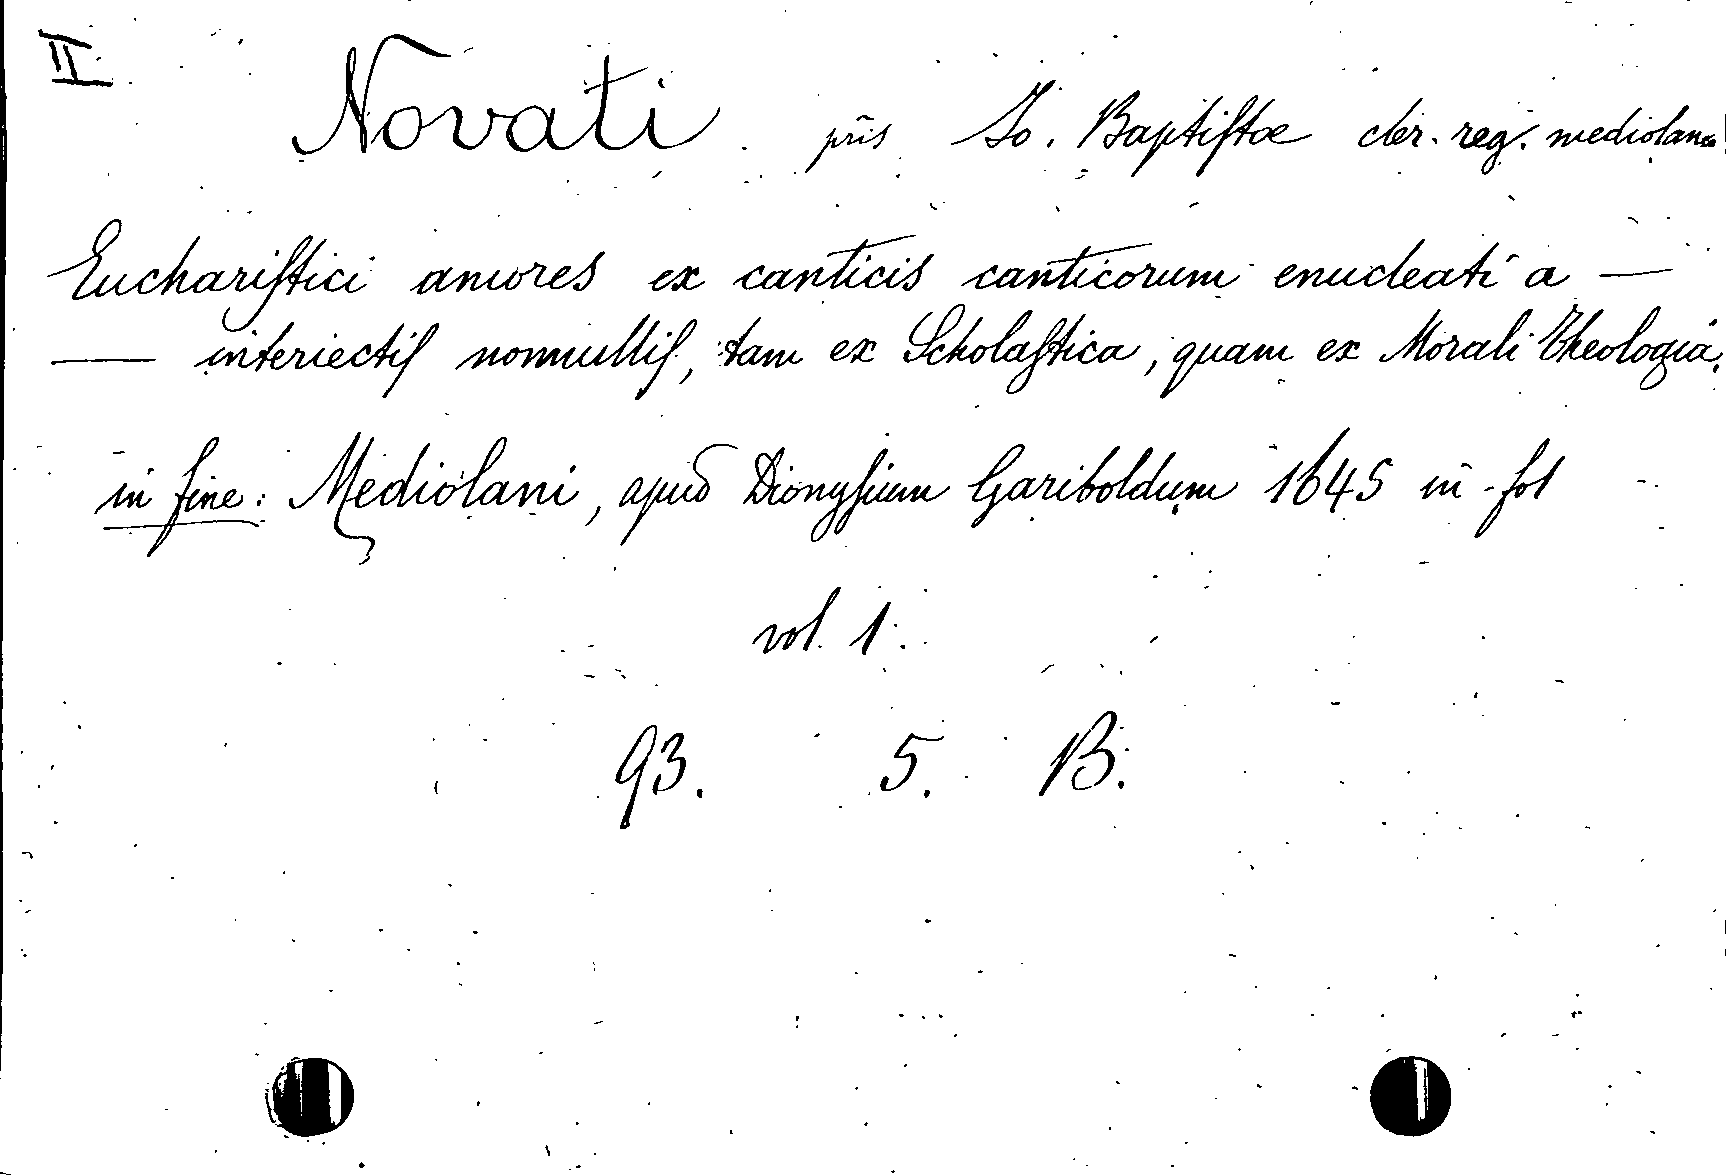 II
Novati pris Io. Baptiſtæ cler. reg. mediolanen
Euchariſtici amores ex canticis canticorum enucleati a —
— interiectiſ nonnulliſ, tam ex Scholaſtica, quam ex Morali Theologia.
in fine: Mediolani, apud Dionyſium Gariboldum 1645 in-fol
vol. 1.
93. 5. B.